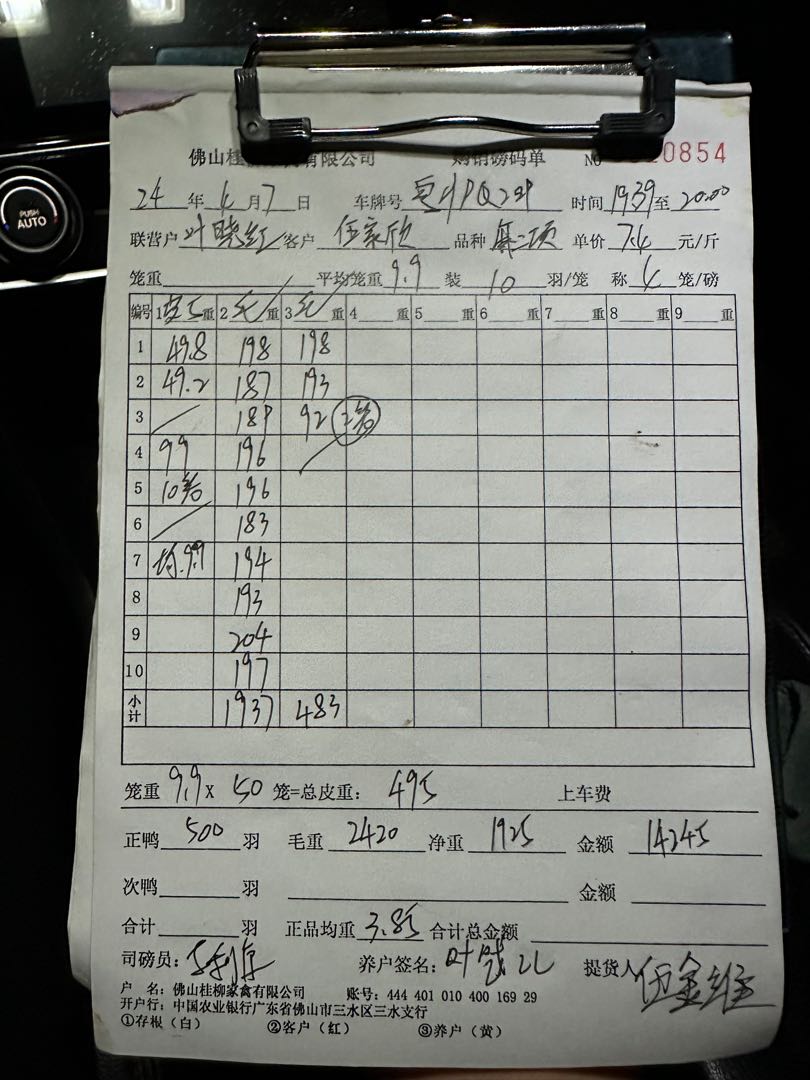 PUSH
AUTO
佛山桂 有限公司 购销磅码单 No 0854
24 年 4 月 7 日 车牌号 时间 1939 至 20:00
联营户 叶晓红 客户 伍家欣 品种 单价 7.4 元/斤
笼重 平均笼重 9.9 装 10 羽/笼 称 4 笼/磅
编号 1 重 2 毛 重 3 毛 重 4 重 5 重 6 重 7 重 8 重 9 重
1 49.8 198 198
2 49.2 187 193
3 189 92 2笼
4 99 196
5 10笼 196
6 183
7 均9.9 194
8 193
9 204
10 197
小计 1937 483
笼重 9.9 X 50 笼=总皮重: 495 上车费
正鸭 500 羽 毛重 2420 净重 1925 金额 14245
次鸭 羽 金额
合计 羽 正品均重 3.85 合计总金额
司磅员: 养户签名: 叶 提货人 伍金维
户 名: 佛山桂柳家禽有限公司 账号: 444 401 010 400 169 29
开户行: 中国农业银行广东省佛山市三水区三水支行
①存根(白) ②客户(红) ③养户(黄)